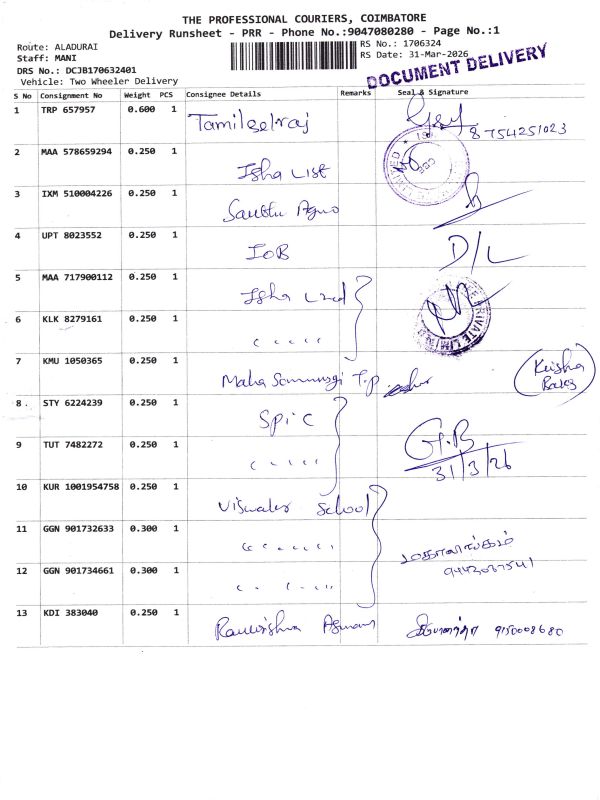 THE PROFESSIONAL COURIERS, COIMBATORE
Delivery Runsheet - PRR - Phone No.:9047080280 - Page No.:1
Route: ALADURAI
Staff: MANI
DRS No.: DCJB170632401
Vehicle: Two Wheeler Delivery
RS No.: 1706324
RS Date: 31-Mar-2026
DOCUMENT DELIVERY
S No Consignment No Weight PCS Consignee Details Remarks Seal & Signature
1 TRP 657957 0.600 1 Tamilselraj 8754251023
2 MAA 578659294 0.250 1 Isha List
3 IXM 510004226 0.250 1
4 UPT 8023552 0.250 1 IOB D/L
5 MAA 717900112 0.250 1 Isha
6 KLK 8279161 0.250 1 " " " "
PRIVATE LIMITED
7 KMU 1050365 0.250 1 Maha T.p
8 STY 6224239 0.250 1 Spic G.B
9 TUT 7482272 0.250 1 " " " " 31/3/26
10 KUR 1001954758 0.250 1 School
11 GGN 901732633 0.300 1 " " " " "
12 GGN 901734661 0.300 1 " " " " "
13 KDI 383040 0.250 1 9150008680